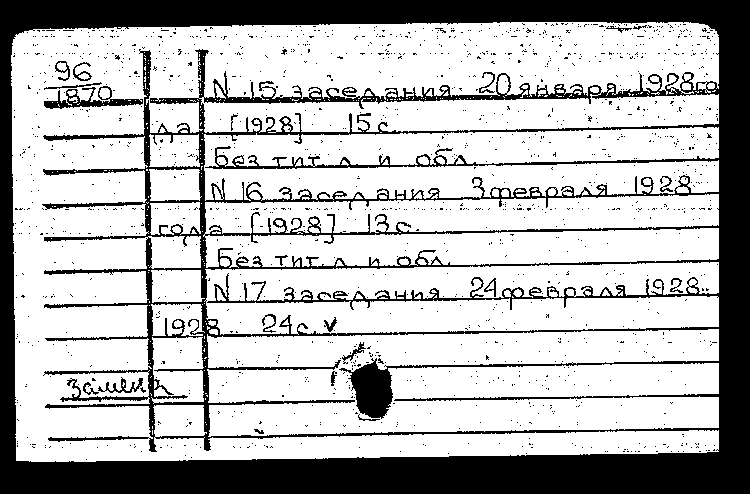 96
1870
N 15 заседания 20 января 1928 го
да [1928] 15 с.
Без тит. л. и обл.
N 16 заседания 3 февраля 1928
года [1928] 13 с.
Без тит. л. и обл.
N 17 заседания 24 февраля 1928..
1928 24 с. v
замена